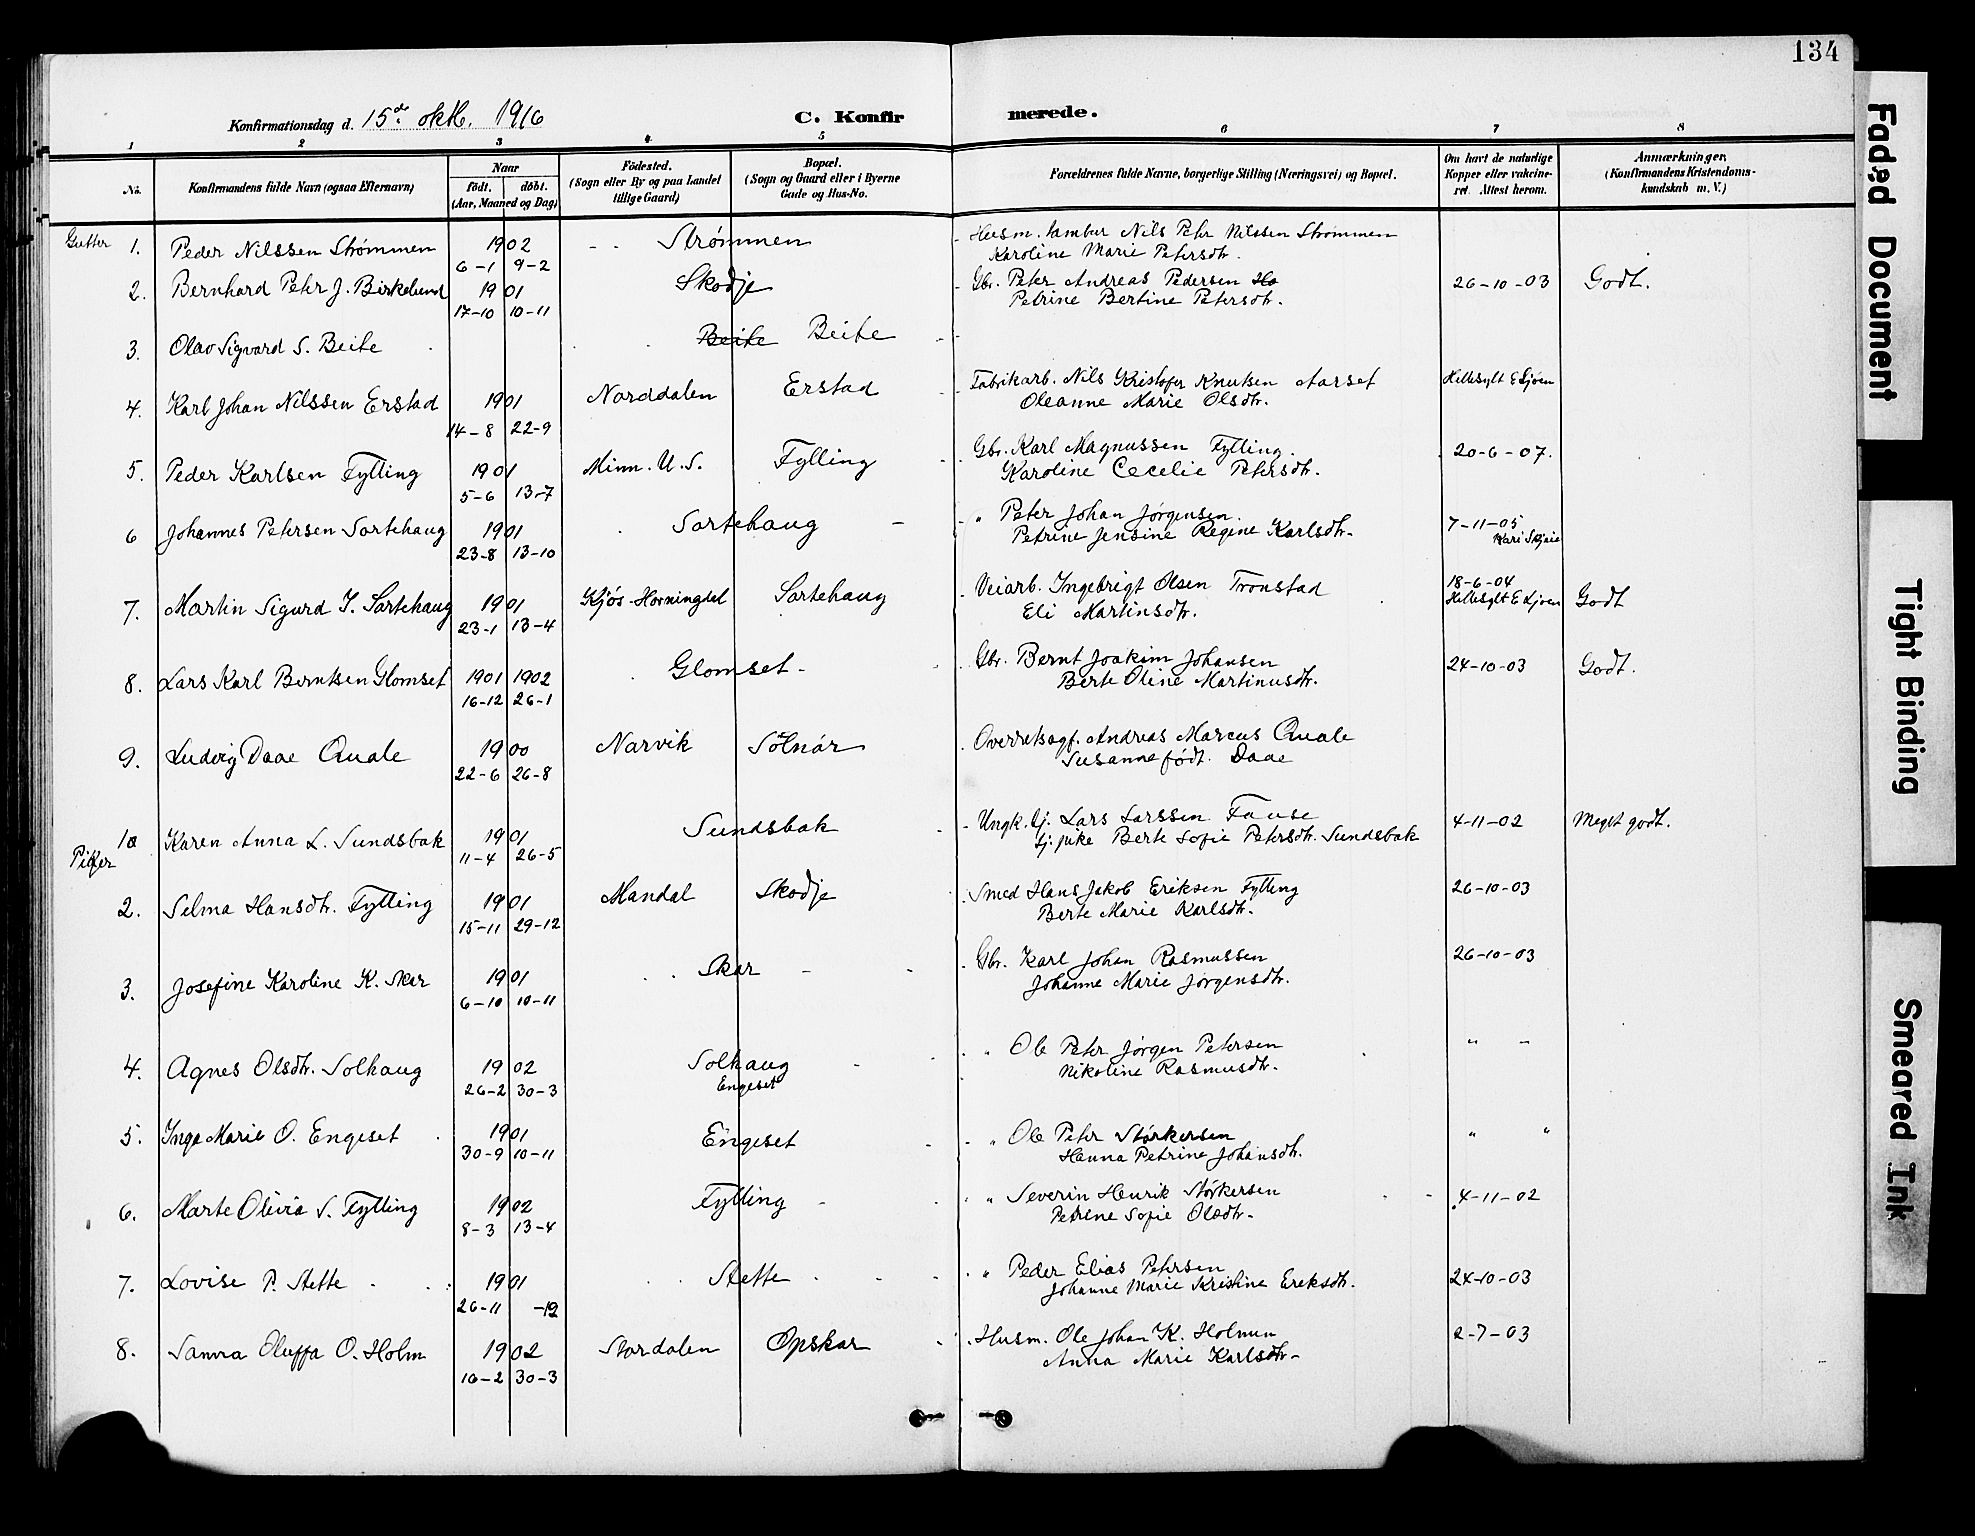 134
Konfirmationsdag d. 15de oktb. 1916
C. Konfirmerede.
1 2 3 4 5 6 7 8
No.
Konfirmandens fulde Navn (ogsaa Efternavn)
Naar
födt. döbt.
(Aar, Maaned og Dag)
Födested.
(Sogn eller By og paa Landet
tillige Gaard)
Bopæl.
(Sogn og Gaard eller i Byerne
Gade og Hus-No.
Forældrenes fulde Navne, borgerlige Stilling (Næringsvei) og Bopæl.
Om havt de naturlige
Kopper eller vakcine-
ret. Attest herom.
Anmærkninger.
(Konfirmandens Kristendoms-
kundskab m. V.)
Gutter 1. Peder Nilssen Strømmen 1902 Strømmen Husm. Nils Petr Nilssen Strømmen
6-1 9-2 Karoline Marie Petersdtr.
2. Bernhard Petr J. Birkelund 1901 Skodje Gbr. Peter Andreas Pedersen Ho 26-10-03 Godt.
17-10 10-11 Petrine Bertine Petersdtr.
3. Olav Sigvard S. Beite Beite Beite
4. Karl Johan Nilssen Erstad 1901 Norddalen Erstad Fabrikarb. Nils Kristofer Knutsen Aarset Hellesylt E Ljøen
14-8 22-9 Oleanne Marie Olsdtr.
5. Peder Karlsen Fylling 1901 Minn. U.S. Fylling Gbr. Karl Magnussen Fylling. 20-6-07.
5-6 13-7 Karoline Cecelie Petersdtr.
6 Johannes Petersen Sortehaug 1901 Sortehaug - " Peter Johan Jørgensen. 7-11-05
23-8 13-10 Petrine Jensine Regine Karlsdtr. Kari Skjeie
7. Martin Sigurd I. Sortehaug 1901 Kjøs-Horningdal Sortehaug Veiarb. Ingebrigt Olsen Tronstad 18-6-04 Godt
23-1 13-4 Eli Martinsdtr. Hellesylt E Ljøen
8. Lars Karl Berntsen Glomset 1901 1902 Glomset - Gbr. Bernt Joakim Johansen 24-10-03 Godt.
16-12 26-1 Berte Oline Martinusdtr.
9. Ludvig Daae Quale 1900 Narvik Solnør Overretssagf. Andreas Marcus Quale
22-6 26-8 Susanne født. Daae
Piker 1 Karen Anna L. Sundsbak 1901 Sundsbak Ungk. tj. Lars Larssen Fause 4-11-02 Meget godt.
11-4 26-5 tj. pike Berte Sofie Petersdtr. Sundsbak
2. Selma Hansdtr. Fylling 1901 Mandal Skodje Smed Hans Jakob Eriksen Fylling 26-10-03
15-11 29-12 Berte Marie Karlsdtr.
3. Josefine Karoline K. Skar 1901 Skar Gbr. Karl Johan Rasmussen 26-10-03
6-10 10-11 Johanne Marie Jørgensdtr.
4. Agnes Olsdtr. Solhaug 1902 Solhaug " Ole Peter Jørgen Petersen " "
26-2 30-3 Engeset Nikoline Rasmusdtr.
5. Inga Marie O. Engeset 1901 Engeset " Ole Petr Størkersen " "
30-9 10-11 Hanna Petrine Johansdtr.
6. Marte Olivia S. Fylling 1902 Fylling " Severin Henrik Størkersen 4-11-02
8-3 13-4 Petrine Sofie Olsdtr.
7. Lovise P. Stette 1901 Stette " Peder Elias Petersen 24-10-03
26-11 -12 Johanne Marie Kristine Ereksdtr.
8. Sanna Oluffa O. Holm 1902 Stordalen Opskar Husm. Ole Johan K. Holmen 2-7-03
16-2 30-3 Anna Marie Karlsdtr.
Faded Document
Tight Binding
Smeared Ink